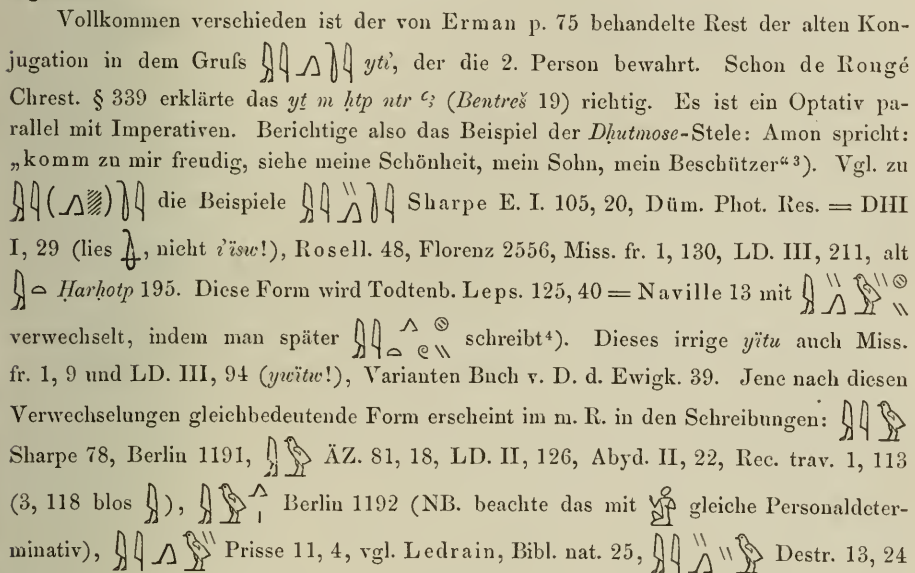 Vollkommen verschieden ist der von Erman p. 75 behandelte Rest der alten Kon-
jugation in dem Gruſs yti҆, der die 2. Person bewahrt. Schon de Rougé
Chrest. § 339 erklärte das yṯ m ḥtp ntr ꜥꜣ (Bentreš 19) richtig. Es ist ein Optativ pa-
rallel mit Imperativen. Berichtige also das Beispiel der Ḏḥutmose-Stele: Amon spricht:
„komm zu mir freudig, siehe meine Schönheit, mein Sohn, mein Beschützer“ ³). Vgl. zu
( ) die Beispiele Sharpe E. I. 105, 20, Düm. Phot. Res. = DHI
I, 29 (lies , nicht i҆ïsw!), Rosell. 48, Florenz 2556, Miss. fr. 1, 130, LD. III, 211, alt
Ḥarḥotp 195. Diese Form wird Todtenb. Leps. 125, 40 = Naville 13 mit
verwechselt, indem man später schreibt⁴). Dieses irrige yïtu auch Miss.
fr. 1, 9 und LD. III, 94 (ywïtw!), Varianten Buch v. D. d. Ewigk. 39. Jene nach diesen
Verwechselungen gleichbedeutende Form erscheint im m. R. in den Schreibungen:
Sharpe 78, Berlin 1191, ÄZ. 81, 18, LD. II, 126, Abyd. II, 22, Rec. trav. 1, 113
(3, 118 blos ), Berlin 1192 (NB. beachte das mit gleiche Personaldeter-
minativ), Prisse 11, 4, vgl. Ledrain, Bibl. nat. 25, Destr. 13, 24